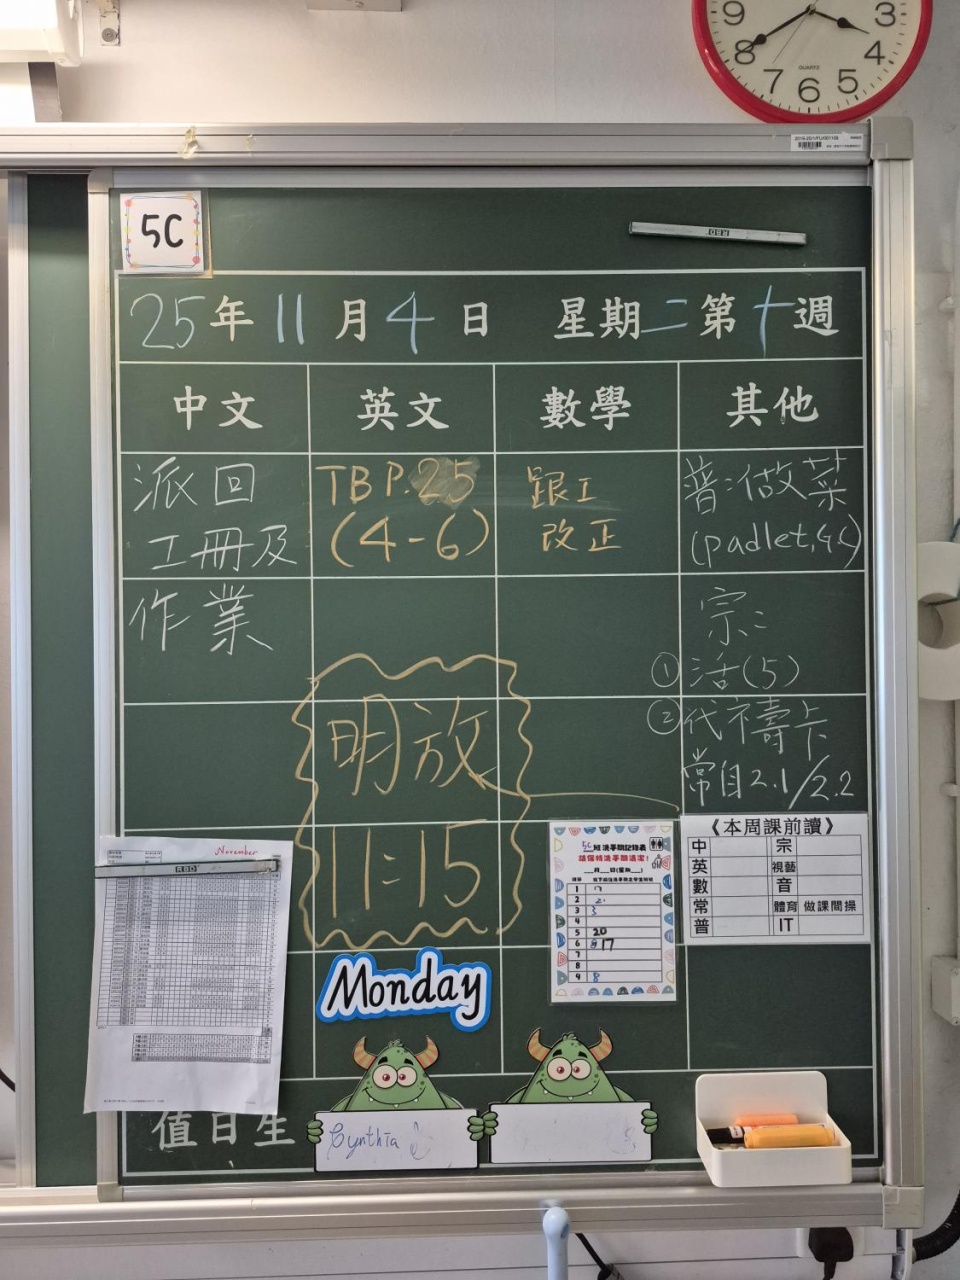 9
3
8
4
7
6
5
QUARTZ
5C
25年11月4日 星期二第十週
中文 英文 數學 其他
派回
工冊及
作業
TB P.25
(4-6)
跟工
改正
普:做菜
(padlet,
宗:
①活(5)
②代禱卡
常自2.1/2.2
明放
11:15
November
5C班洗手間記錄表
請保持洗手間清潔!
1
2 2
3 3
4
5 20
6 17
7
8
9 8
《本周課前讀》
中 宗
英 視藝
數 音
常 體育 做課間操
普 IT
Monday
值日生
Cynthia